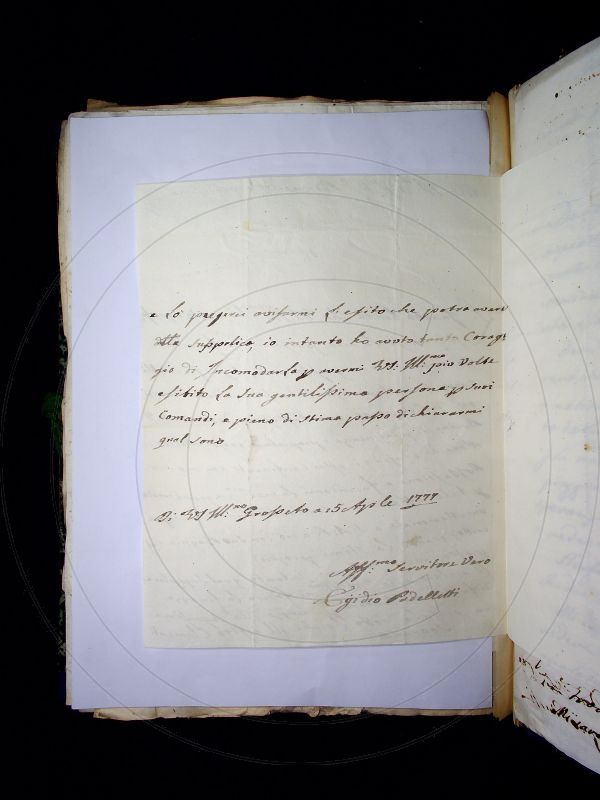 e Lo pregerei avisarmi L'esito che potra avere
dtta Supplica, io intanto ho avuto tanto Corag=
gio di Incomodarla p avermi VS Ill:mo piu Volte
esibito La Sua gentilissima persona p Suoi
Comandi, e pieno di Stima passo di chiararmi
qual sono
Di VS Ill:mo Grosseto a 15 Aprle 1777
Aff:mo Servitore Vero
Egidio